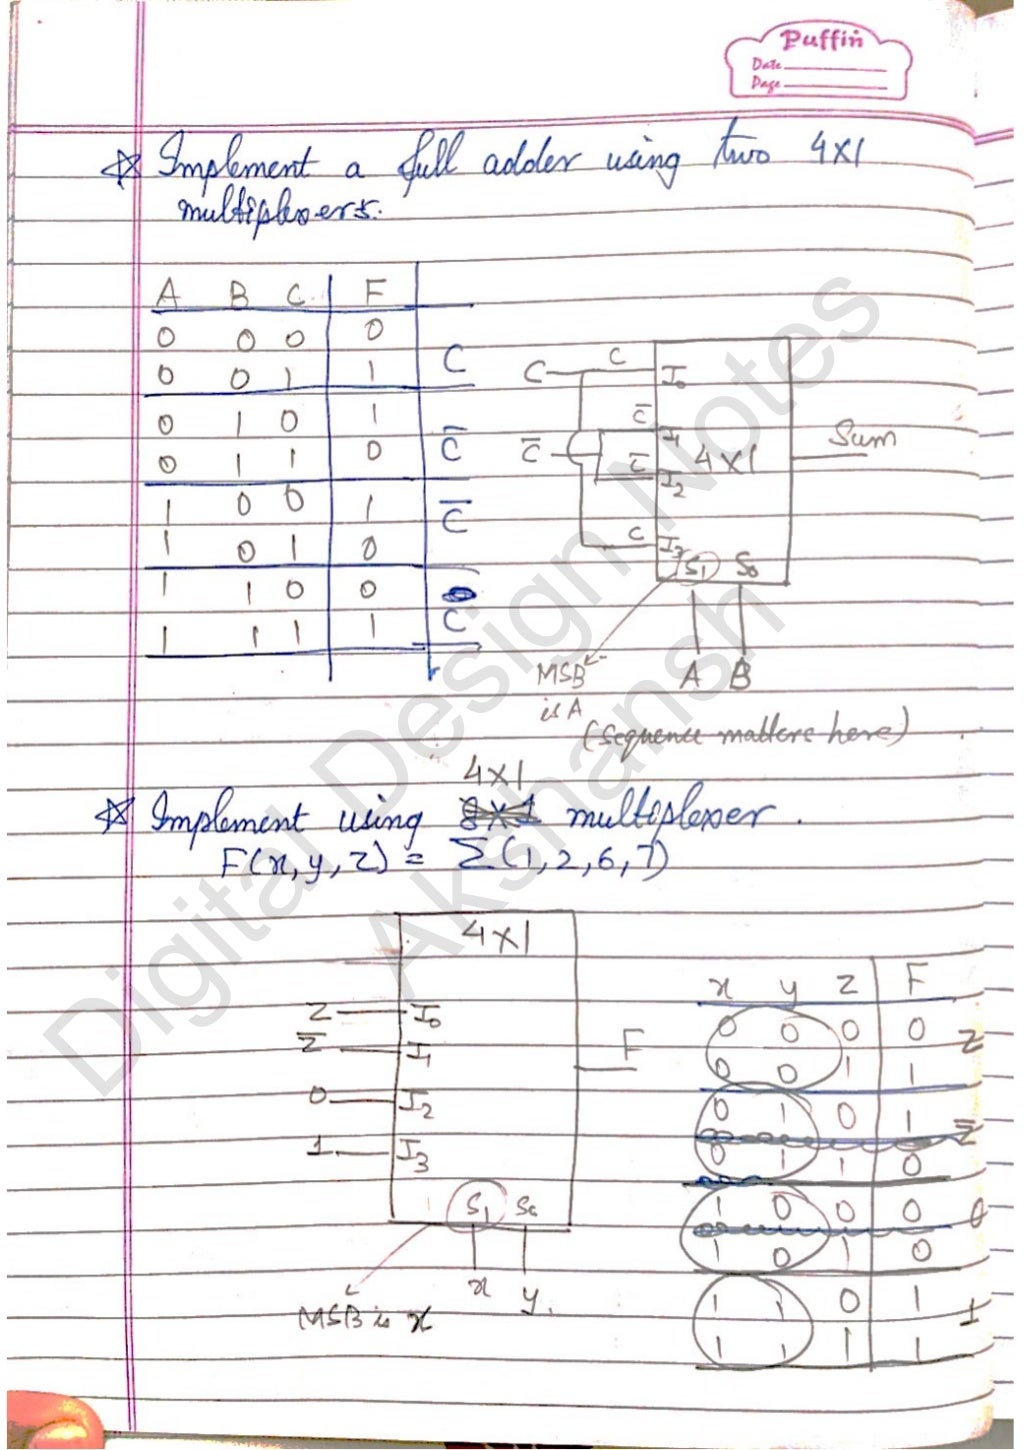 Puffin
Date
Page
☆ Implement a full adder using two 4x1
multiplexers.
A B C F
0 0 0 0
0 0 1 1 C
0 1 0 1
0 1 1 0 C̅
1 0 0 1 C̅
1 0 1 0
1 1 0 0
1 1 1 1 C
C C I₀
C̅ I₁
C̅ C̅ I₂
4X1 Sum
C I₃
S₁ S₀
MSB
is A
A B
(Sequence matters here)
4X1
☆ Implement using multiplexer.
F(x, y, z) = Σ(1, 2, 6, 7)
4X1
Z I₀
Z̅ I₁
0 I₂
1 I₃
F
S₁ S₀
x y.
MSB is x
x y z F
0 0 0 0 Z
0 0 1 1
0 1 0 1 Z̅
0 1 1 0
1 0 0 0 0
1 0 1 0
1 1 0 1 1
1 1 1 1
Digital Design Notes
Akshansh